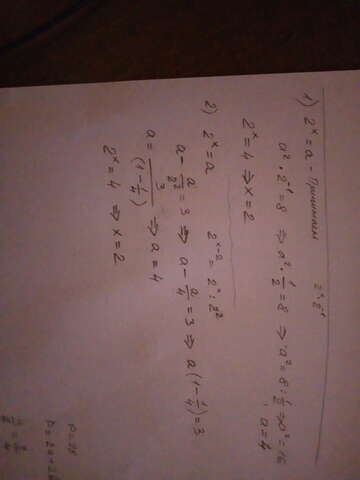 1) 2ˣ = a - Принимаем 2ˣ·2⁻¹
a²·2⁻¹=8 ⇒ a²·1/2=8 ⇒ a²=8:1/2 ⇒ a²=16
a=4
2ˣ=4 ⇒ x=2
2) 2ˣ=a 2ˣ⁻²=2ˣ:2²
a-a/2²=3 ⇒ a-a/4=3 ⇒ a(1-1/4)=3
a=3/(1-1/4) ⇒ a=4
2ˣ=4 ⇒ x=2